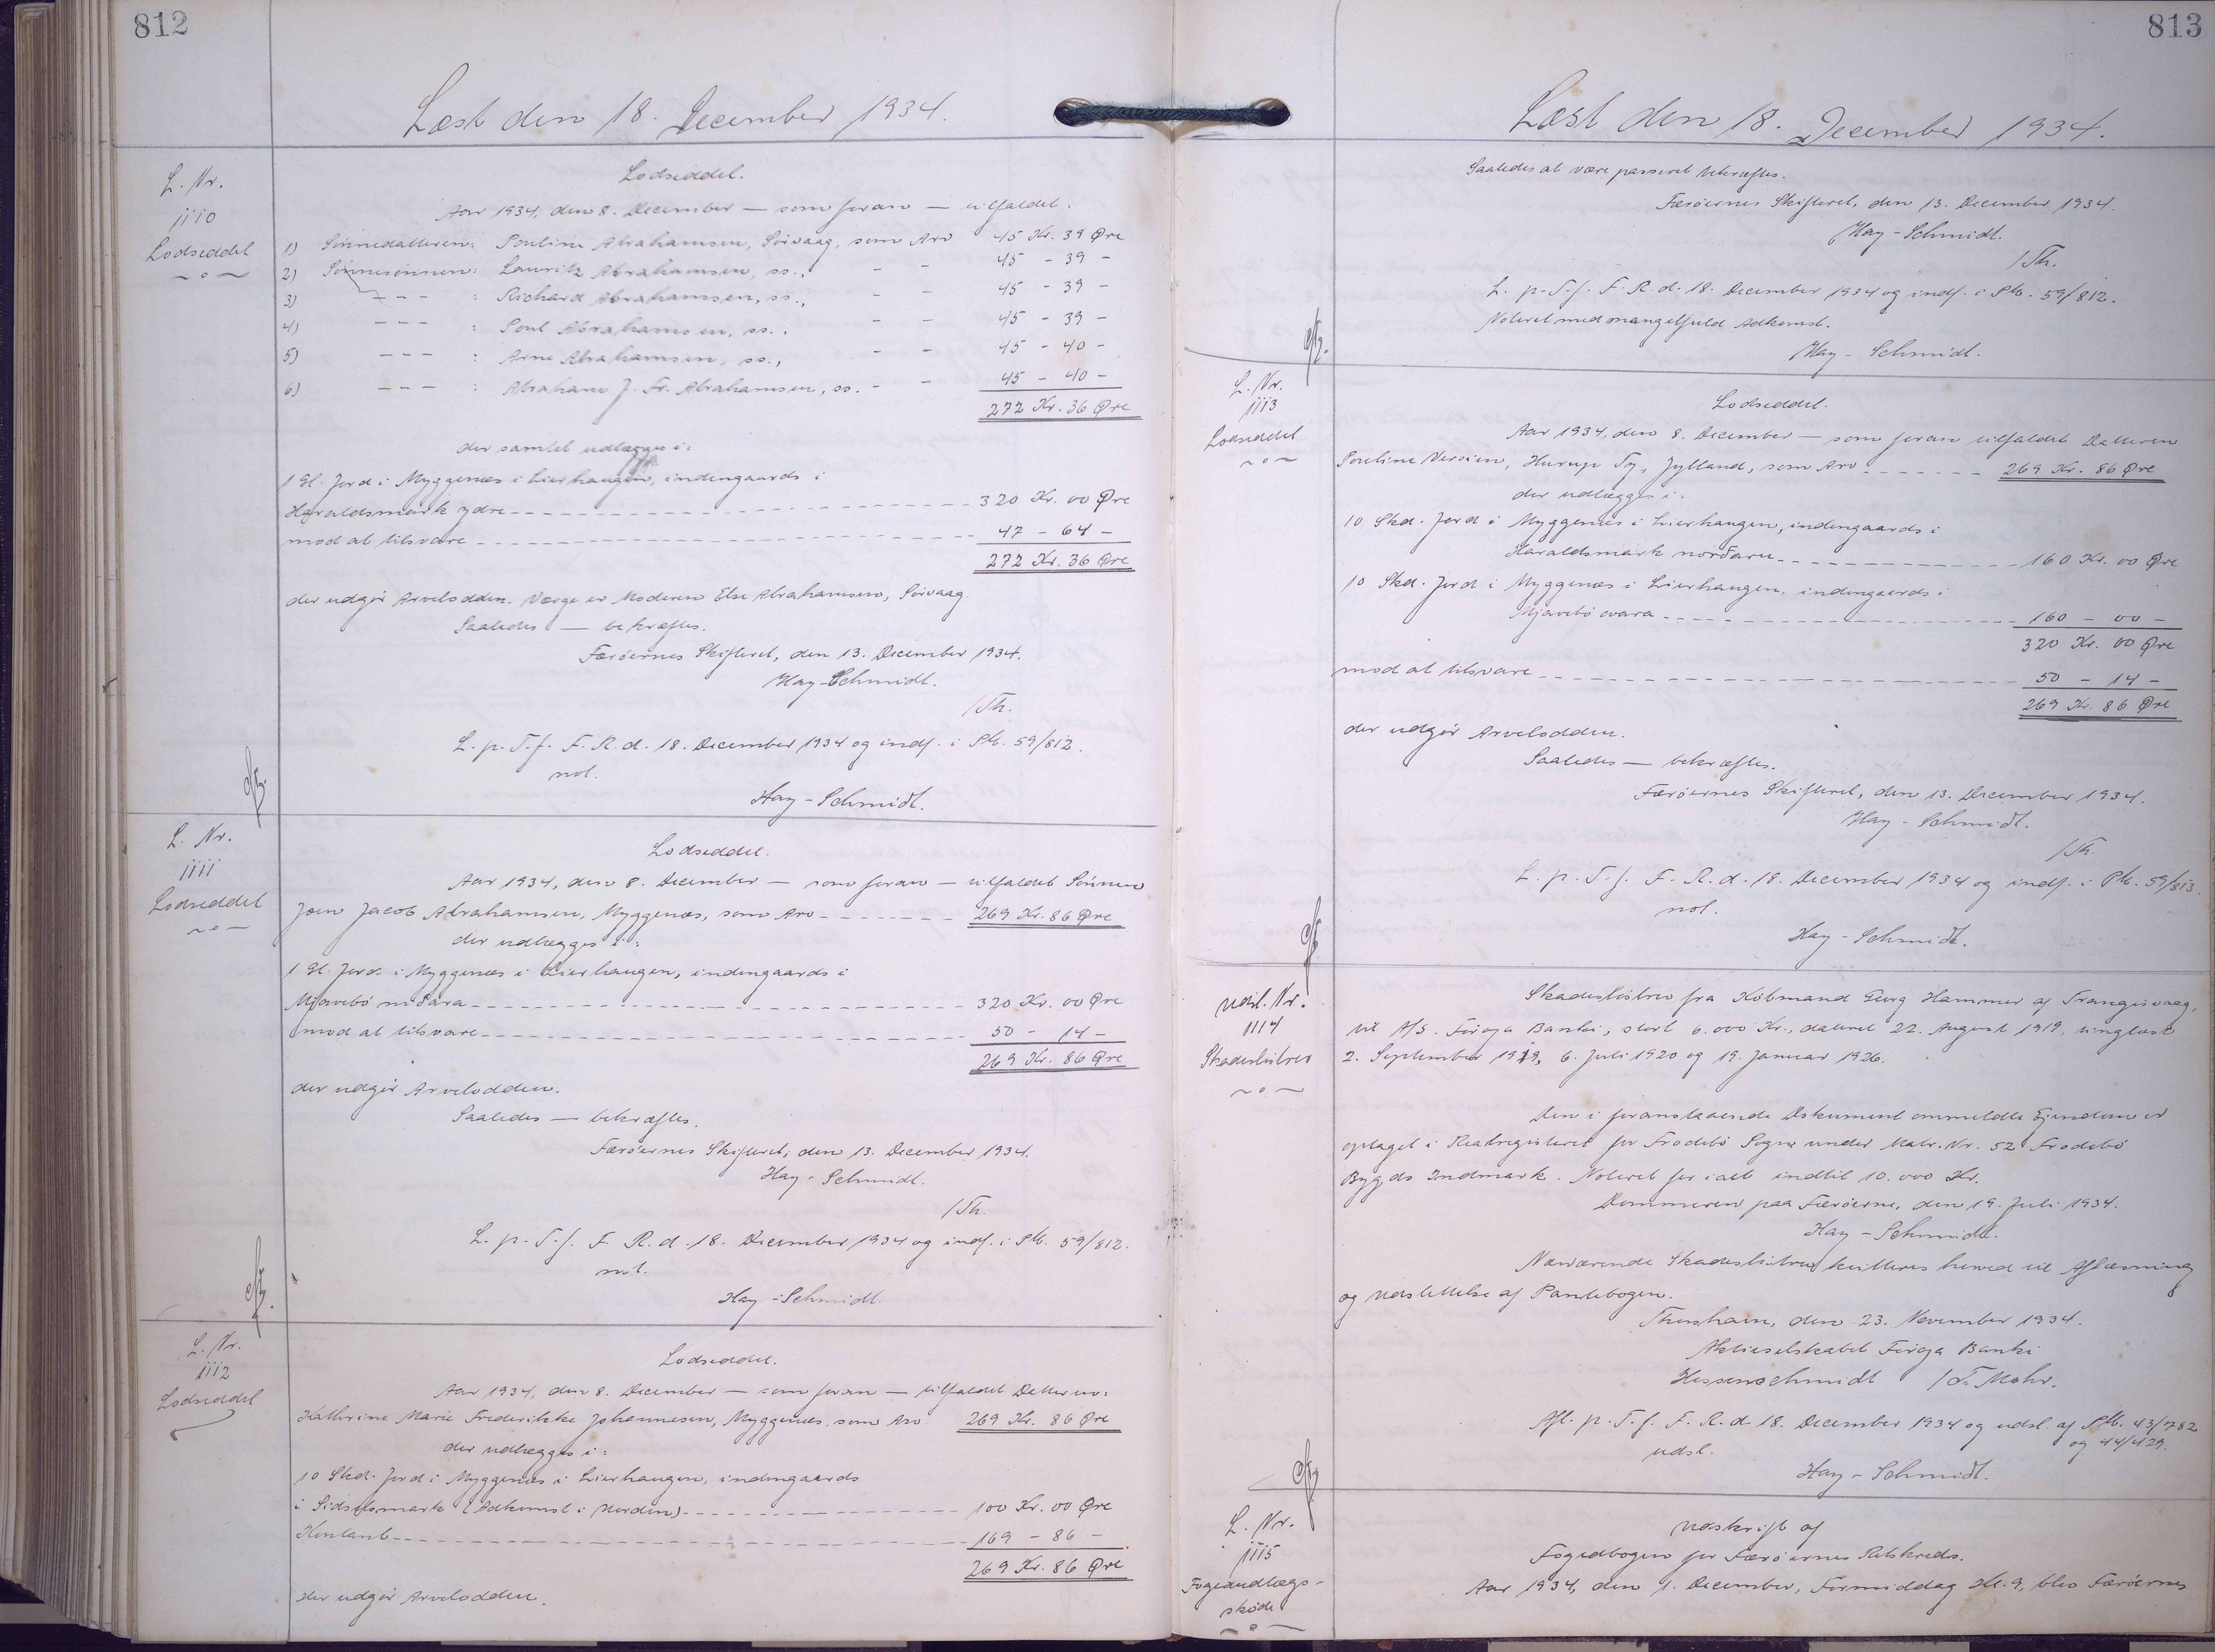 812
Læst den 18. December 1934.
L. Nr.
1110
Lodseddel
Lodseddel.
Aar 1934, den 8. December — som foran — tilfaldet:
1) Sønnedatteren: Pouline Abrahamsen, Sørvaag, som Arv 45 Kr. 39 Øre
2) Sønnesønnen: Lauritz Abrahamsen, ss., - - 45 - 39 -
3) - - - : Richard Abrahamsen, ss., - - 45 - 39 -
4) - - - : Poul Abrahamsen, ss., - - 45 - 39 -
5) - - - : Arne Abrahamsen, ss., - - 45 - 40 -
6) - - - : Abraham J. Fr. Abrahamsen, ss. - - 45 - 40 -
272 Kr. 36 Øre
der samlet udlægges i:
1 Gl. Jord i Myggenæs i Lierhaugen, indengaards i
Haraldsmark ydre 320 Kr. 00 Øre
mod at tilsvare 47 - 64 -
272 Kr. 36 Øre
der udgør Arvelodden. Værge er Moderen Else Abrahamsen, Sørvaag.
Saaledes — bekræftes.
Færøernes Skifteret, den 13. December 1934.
Hay-Schmidt.
/Th.
L. p. T. f. F. R. d. 18. December 1934 og indf. i Ptb. 59/812.
not.
Hay-Schmidt.
L. Nr.
1111
Lodseddel
Lodseddel.
Aar 1934, den 8. December — som foran — tilfaldet Sønnen
Joen Jacob Abrahamsen, Myggenæs, som Arv 269 Kr. 86 Øre
der udlægges i:
1 Gl. Jord i Myggenæs i Lierhaugen, indengaards i
Mjavebø niðara 320 Kr. 00 Øre
mod at tilsvare 50 - 14 -
269 Kr. 86 Øre
der udgør Arvelodden.
Saaledes — bekræftes.
Færøernes Skifteret, den 13. December 1934.
Hay-Schmidt.
/Th.
L. p. T. f. F. R. d. 18. December 1934 og indf. i Ptb. 59/812.
not.
Hay-Schmidt.
L. Nr.
1112
Lodseddel
Lodseddel.
Aar 1934, den 8. December — som foran — tilfaldet Datteren:
Kathrine Marie Frederikke Johannesen, Myggenæs, som Arv 269 Kr. 86 Øre
der udlægges i:
10 Skd. Jord i Myggenæs i Lierhaugen, indengaards
i Sidselsmark (Adkomst i Orden) 100 Kr. 00 Øre
Kontant 169 - 86 -
269 Kr. 86 Øre
der udgør Arvelodden.
813
Læst den 18. December 1934.
Saaledes at være passeret bekræftes.
Færøernes Skifteret, den 13. December 1934.
Hay-Schmidt.
/Th.
L. p. T. f. F. R. d. 18. December 1934 og indf. i Ptb. 59/812.
Noteret med mangelfuld Adkomst.
Hay-Schmidt.
L. Nr.
1113
Lodseddel
Lodseddel.
Aar 1934, den 8. December — som foran tilfaldet Datteren
Pouline Hurup Ty, Jylland, som Arv 269 Kr. 86 Øre
der udlægges i:
10 Skd. Jord i Myggenæs i Lierhaugen, indengaards i
Haraldsmark norðaru 160 Kr. 00 Øre
10 Skd. Jord i Myggenæs i Lierhaugen, indengaards i
Mjavebø ovara 160 - 00 -
320 Kr. 00 Øre
mod at tilsvare 50 - 14 -
269 Kr. 86 Øre
der udgør Arvelodden.
Saaledes — bekræftes.
Færøernes Skifteret, den 13. December 1934.
Hay-Schmidt.
/Th.
L. p. T. f. F. R. d. 18. December 1934 og indf. i Ptb. 59/813.
not.
Hay-Schmidt.
Udsl. Nr.
1114
Skadesløsbrev
Skadesløsbrev fra Købmand Georg Hammer af Trangisvaag,
til A/S. Føroya Banki, stort 6.000 Kr., dateret 22. August 1919, tinglæst
2. September 1919, 6. Juli 1920 og 19. Januar 1926.
Den i foranstaaende Dokument ommeldte Ejendom er
optaget i Realregisteret for Frodebø Sogn under Matr. Nr. 52 Frodebø
Bygds Indmark. Noteret for ialt indtil 10.000 Kr.
Dommeren paa Færøerne, den 19. Juli 1934.
Hay-Schmidt.
Nærværende Skadesløsbrev kvitteres herved til Aflæsning
og Udslettelse af Pantebogen.
Thorshavn, den 23. November 1934.
Aktieselskabet Føroya Banki
Hessenschmidt / T. Mohr.
Afl. p. T. f. F. R. d. 18. December 1934 og udsl. af Ptb. 43/782
og 44/429.
udsl.
Hay-Schmidt.
L. Nr.
1115
Fogedudlægs-
skøde
Udskrift af
Fogedbogen for Færøernes Retskreds.
Aar 1934, den 1. December, Formiddag Kl. 9, blev Færøernes